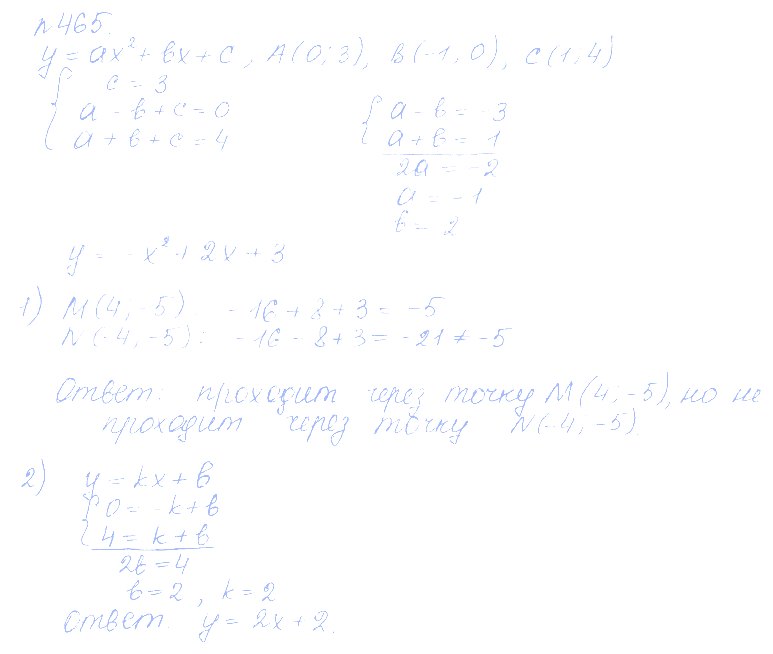 №465.
y = ax² + bx + c, A(0; 3), B(-1, 0), C(1, 4)
c = 3
a - b + c = 0
a + b + c = 4
a - b = -3
a + b = 1
2a = -2
a = -1
b = 2
y = -x² + 2x + 3
1) M(4, -5) -16 + 8 + 3 = -5
N(-4, -5): -16 - 8 + 3 = -21 ≠ -5
Ответ: проходит через точку M(4; -5), но не
проходит через точку N(-4, -5).
2) y = kx + b
0 = -k + b
4 = k + b
2b = 4
b = 2, k = 2
Ответ. y = 2x + 2.